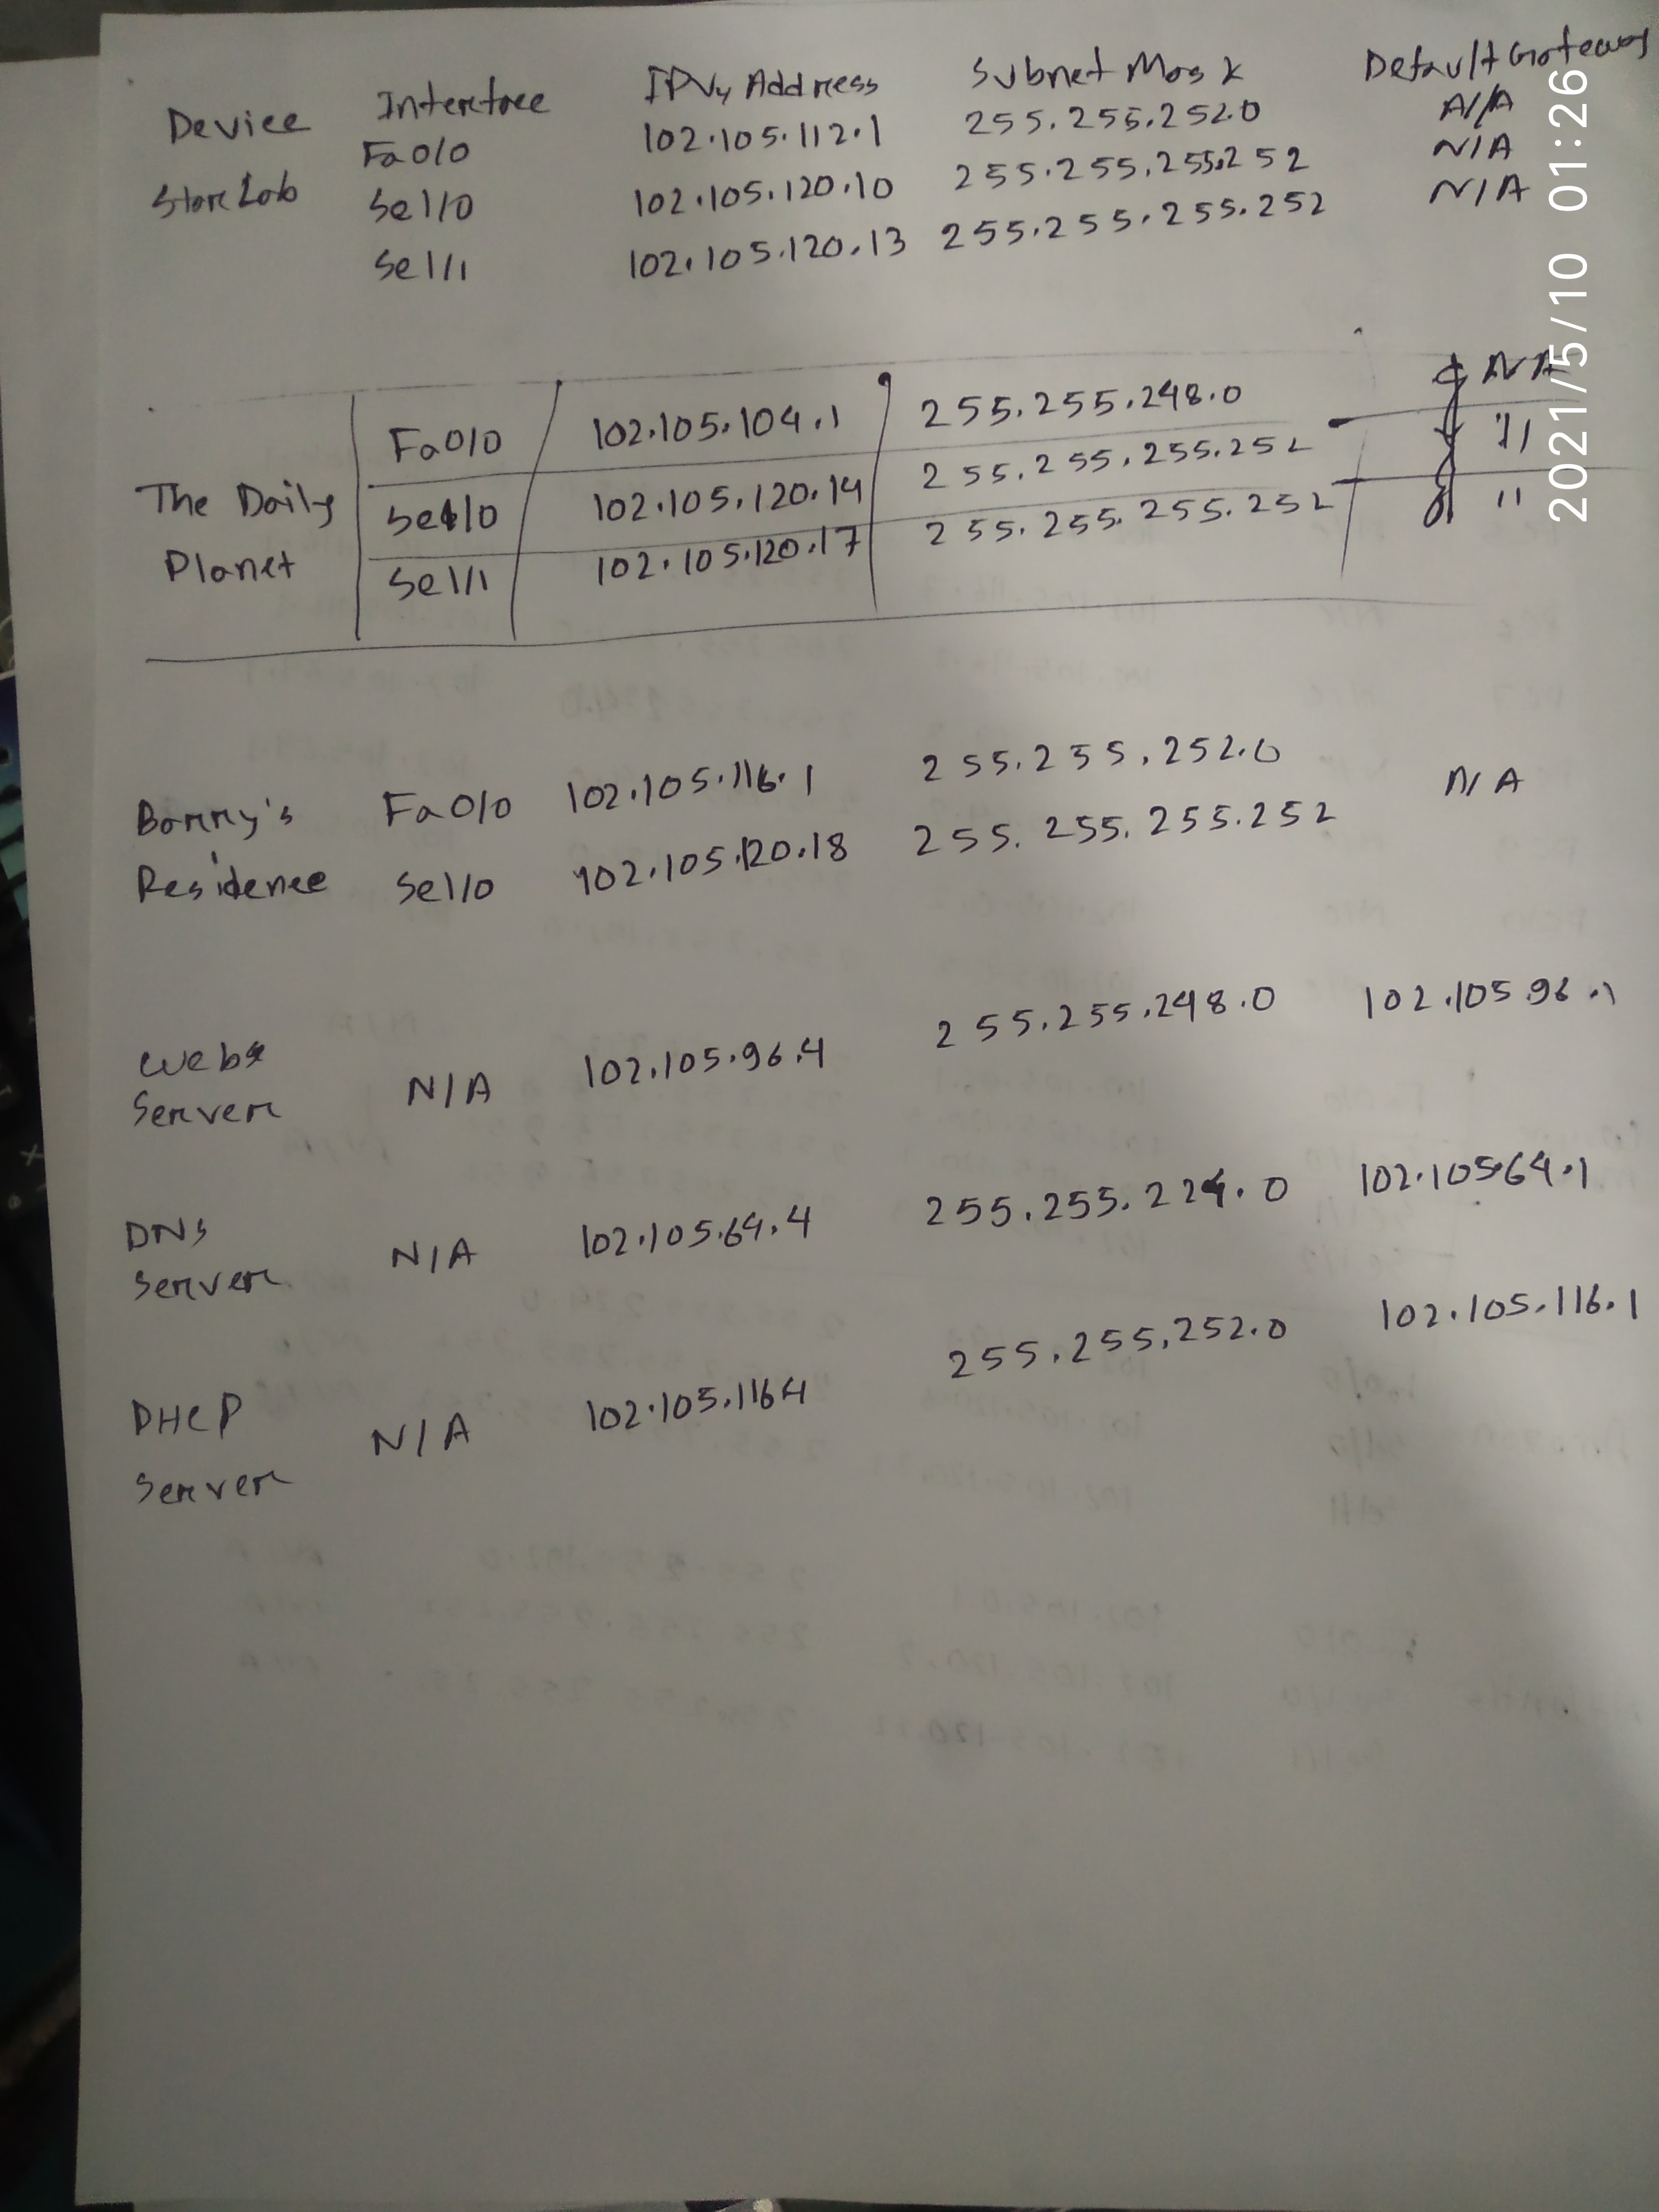 Device Interface IPV4 Address Subnet Mask Default Gateway
Fa0/0 102.105.112.1 255.255.252.0 N/A
Star Lab Se1/0 102.105.120.10 255.255.255.252 N/A
Se1/1 102.105.120.13 255.255.255.252 N/A
Fa0/0 102.105.104.1 255.255.248.0 N/A
The Daily Se1/0 102.105.120.14 255.255.255.252 "
Planet Se1/1 102.105.120.17 255.255.255.252 "
Barry's Fa0/0 102.105.116.1 255.255.252.0 N/A
Residence Se1/0 102.105.120.18 255.255.255.252
Web
Server N/A 102.105.96.4 255.255.248.0 102.105.96.1
DNS
Server N/A 102.105.64.4 255.255.224.0 102.105.64.1
DHCP
Server N/A 102.105.116.4 255.255.252.0 102.105.116.1
2021/5/10 01:26